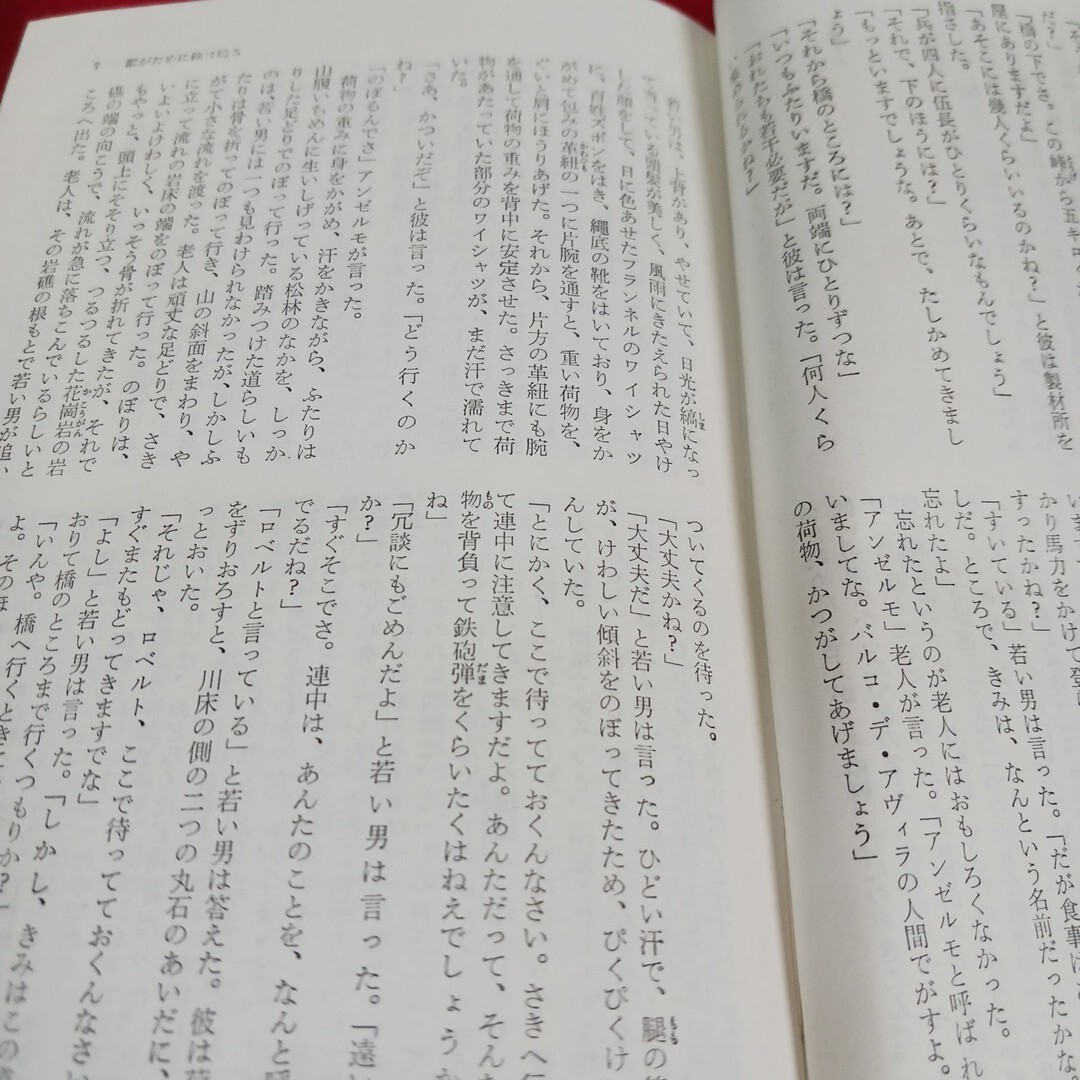 だ？」
「橋の下でさ。この峠から五キロ
屋にありますだよ」
「あそこには幾人くらいいるのかね？」と彼は製材所を
指さした。
「兵が四人に伍長がひとりくらいなもんでしょう」
「それで、下のほうには？」
「もっといますでしょうな。あとで、たしかめてきまし
ょう」
「それから橋のところには？」
「いつもふたりいますだ。両端にひとりずつな」
「おれたちも若干必要だが」と彼は言った。「何人くら
かり馬力をかけて登
すったかね？」
「すいている」若い男は言った。「だが食事は
しだ。ところで、きみは、なんという名前だったかな。
忘れたよ」
忘れたというのが老人にはおもしろくなかった。
「アンゼルモ」老人が言った。「アンゼルモと呼ばれ
いましてな。バルコ・デ・アヴィラの人間でがすよ。
の荷物、かつがしてあげましょう」
7 誰がために鐘は鳴る
若い男は、上背があり、やせていて、日光が縞になっ
ている頭髪が美しく、風雨にきたえられた日やけ
した顔をして、日に色あせたフランネルのワイシャツ
に、百姓ズボンをはき、縄底の靴をはいており、身をか
がめて包みの革紐の一つに片腕を通すと、重い荷物を、
ぐいと肩にほうりあげた。それから、片方の革紐にも腕
を通して荷物の重みを背中に安定させた。さっきまで荷
物があたっていた部分のワイシャツが、まだ汗で濡れて
いた。
「さあ、かついだぞ」と彼は言った。「どう行くのか
ね？」
「のぼるんでさ」アンゼルモが言った。
荷物の重みに身をかがめ、汗をかきながら、ふたりは
山腹いちめんに生いしげっている松林のなかを、しっか
りした足どりでのぼって行った。踏みつけた道らしいも
のは、若い男には一つも見わけられなかったが、しかしふ
たりは骨を折ってのぼって行き、山の斜面をまわり、や
がて小さな流れを渡った。老人は頑丈な足どりで、さき
に立って流れの岩床の端をのぼって行った。のぼりは、
いよいよけわしく、いっそう骨が折れてきたが、それで
もやっと、頭上にそそり立つ、つるつるした花崗岩の岩
礁の端の向こうで、流れが急に落ちこんでいるらしいと
ころへ出た。老人は、その岩礁の根もとで若い男が追い
ついてくるのを待った。
「大丈夫かね？」
「大丈夫だ」と若い男は言った。ひどい汗で、腿の
が、けわしい傾斜をのぼってきたため、ぴくぴくけ
んしていた。
「とにかく、ここで待っておくんなさい。さきへ行
て連中に注意してきますだよ。あんただって、そんな
物を背負って鉄砲弾をくらいたくはねえでしょうか
ね」
「冗談にもごめんだよ」と若い男は言った。「遠い
か？」
「すぐそこでさ。連中は、あんたのことを、なんと呼
でるだね？」
「ロベルトと言っている」と若い男は答えた。彼は荷
をずりおろすと、川床の側の二つの丸石のあいだに、
っとおいた。
「それじゃ、ロベルト、ここで待っておくんなさい
すぐまたもどってきますでな」
「よし」と若い男は言った。「しかし、きみはこの
おりて橋のところまで行くつもりか？」
「いんや。橋へ行くときに
よ。そのほ